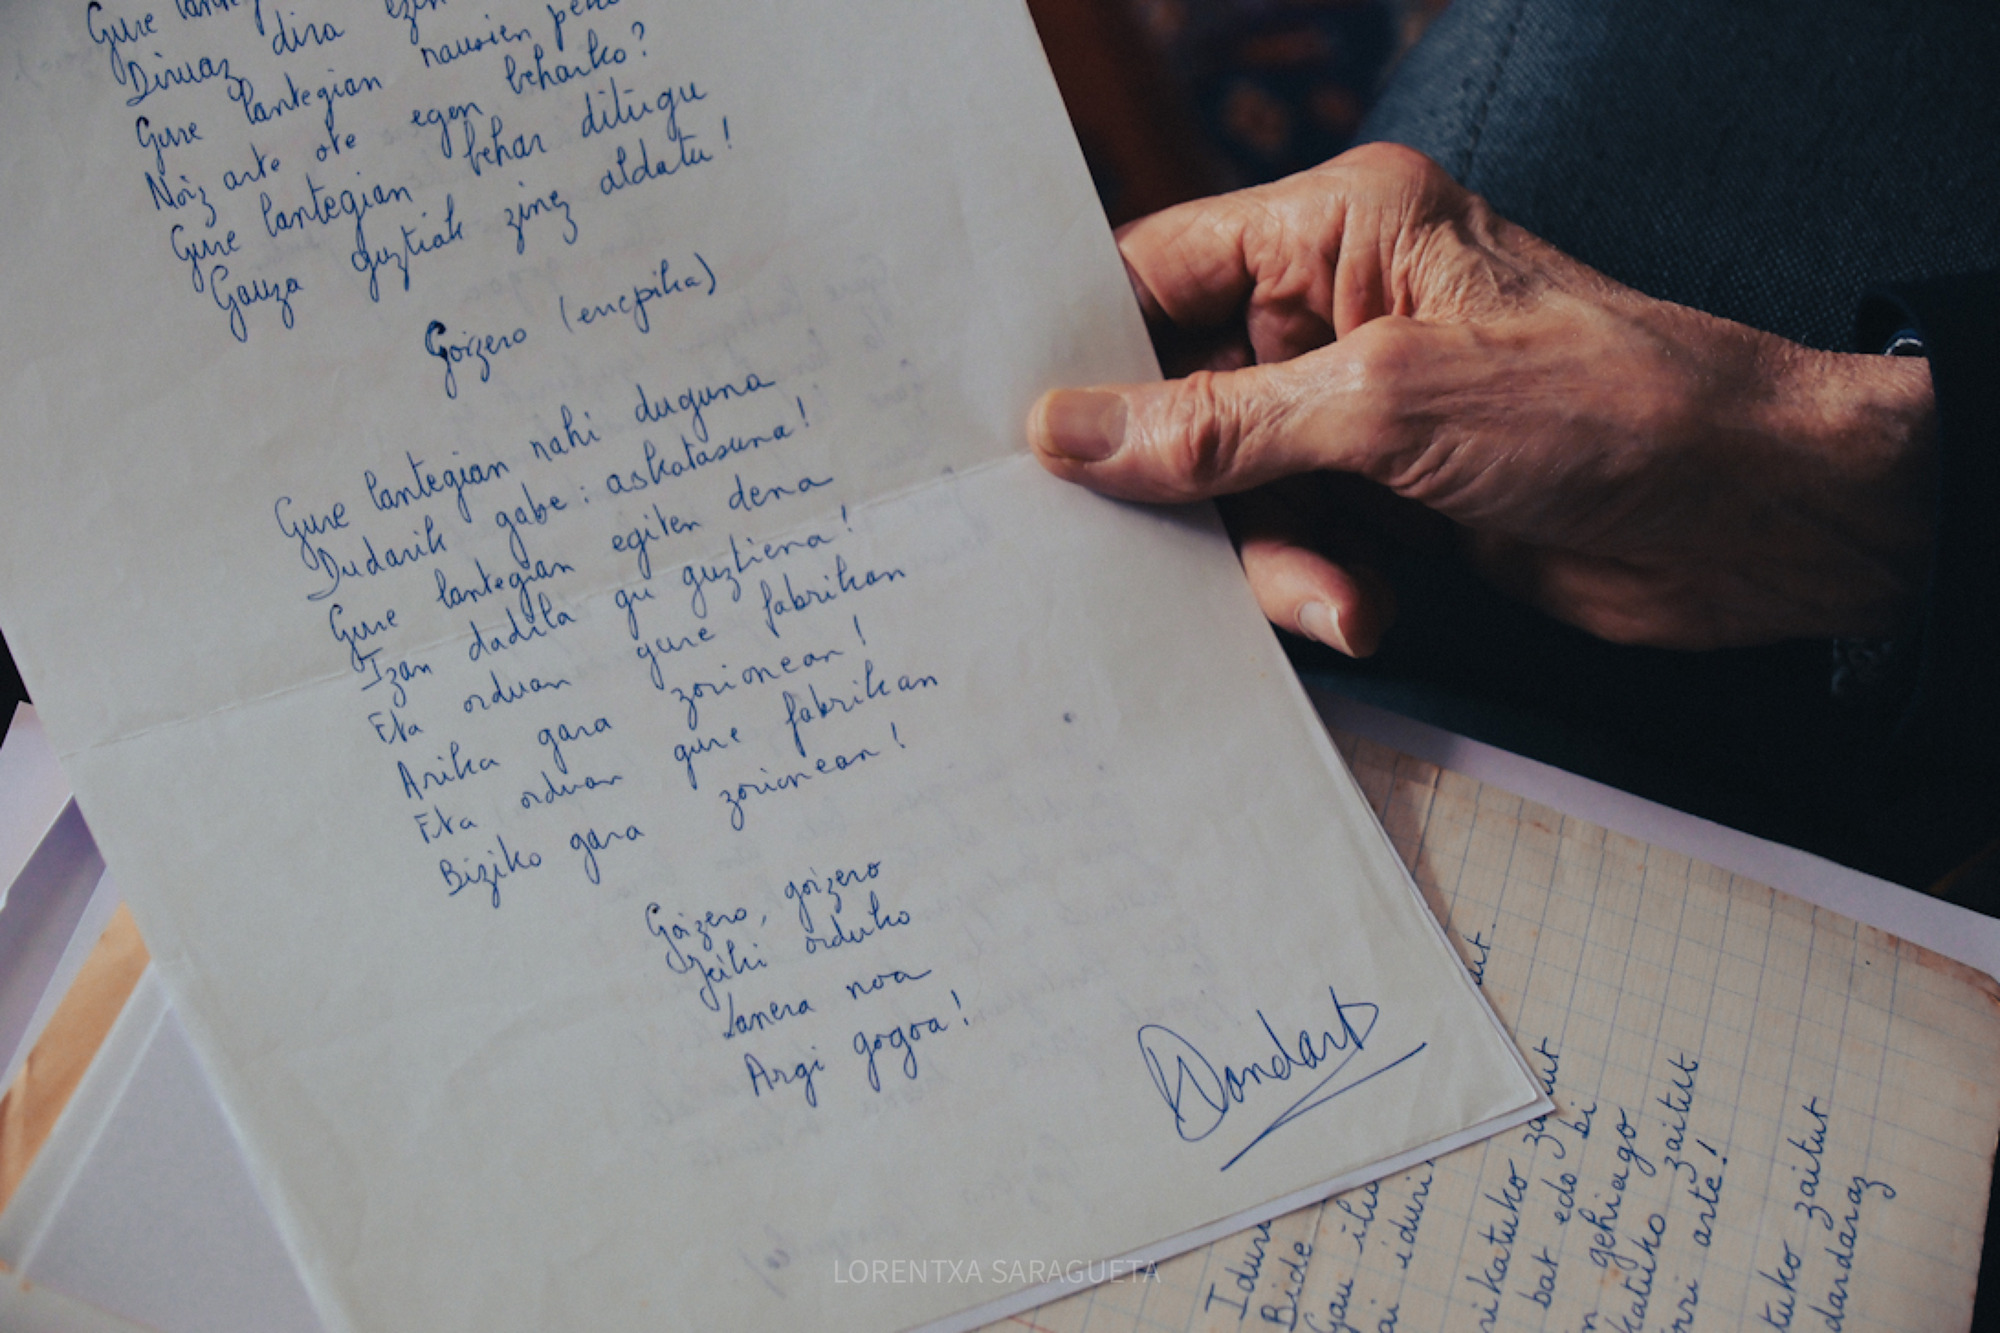 Gure
Diruaz dira ezin
Gure lantegian nausien
Noiz arte ote egon beharko?
Gure lantegian behar ditugu
Gauza guztiak zinez aldatu!
Goizero (errepika)
Gure lantegian nahi duguna
Dudarik gabe: askatasuna!
Gure lantegian egiten dena
Izan dadila gu guztiena!
Eta orduan gure fabrikan
Ariko gara zorionean!
Eta orduan gure fabrikan
Biziko gara zorionean!
Goizero, goizero
Jeiki orduko
Lanera noa
Argi gogoa!
Bide
Gau
bat edo bi
gehiago
zaitut
arte!
zaitut
dardaraz
LORENTXA SARAGUETA